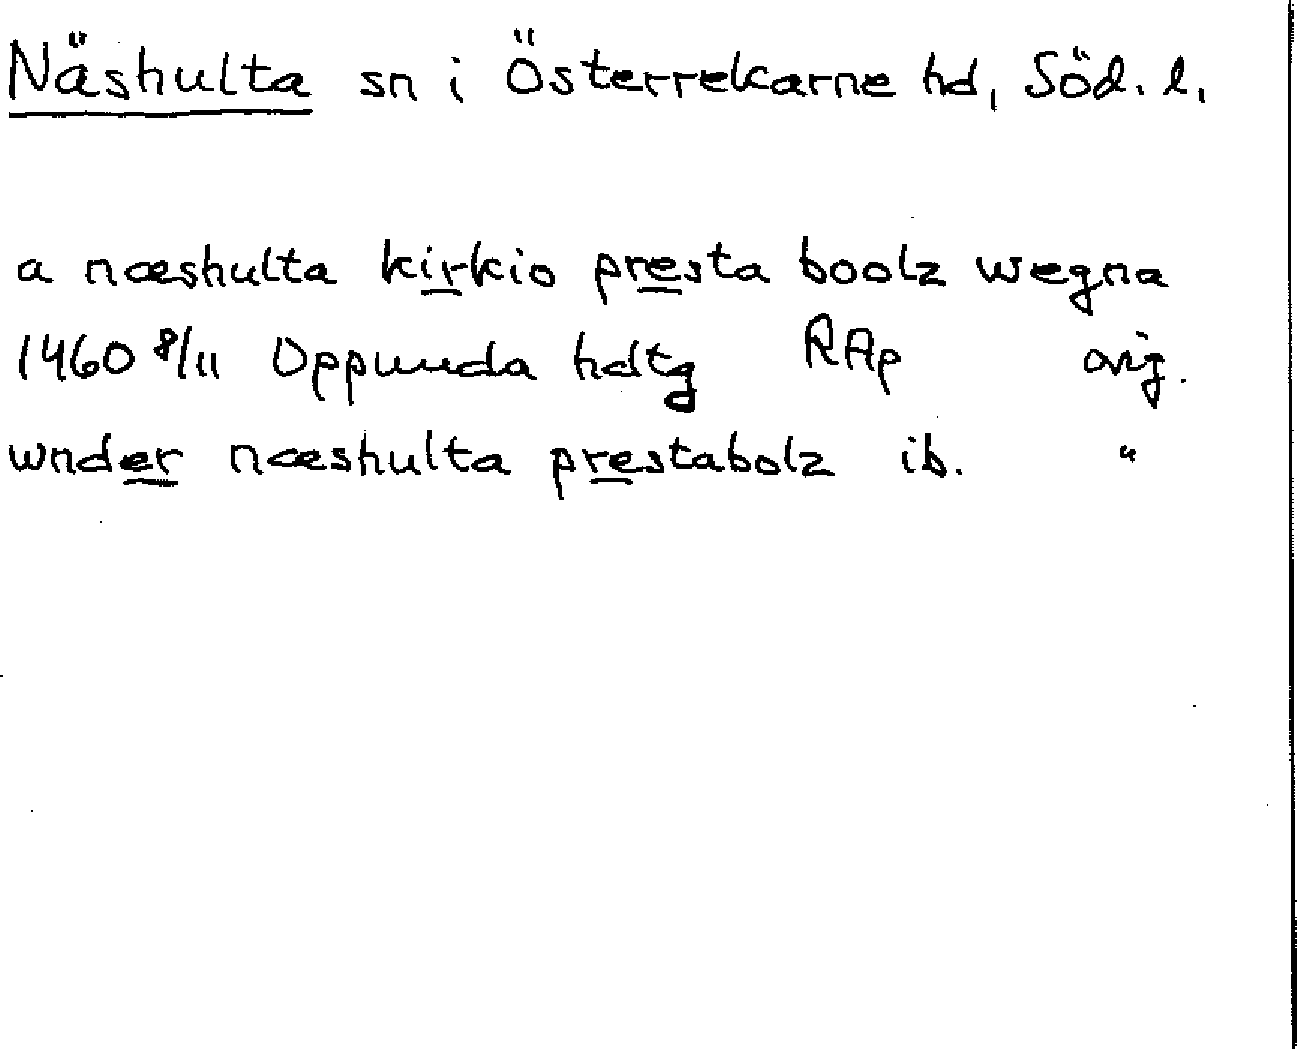 Näshulta sn i Österrekarne hd, Söd. l.
a næshulta kirkio presta boolz wegna
1460 8/11 Oppunda hdtg RAp orig.
wnder næshulta prestabolz ib. "